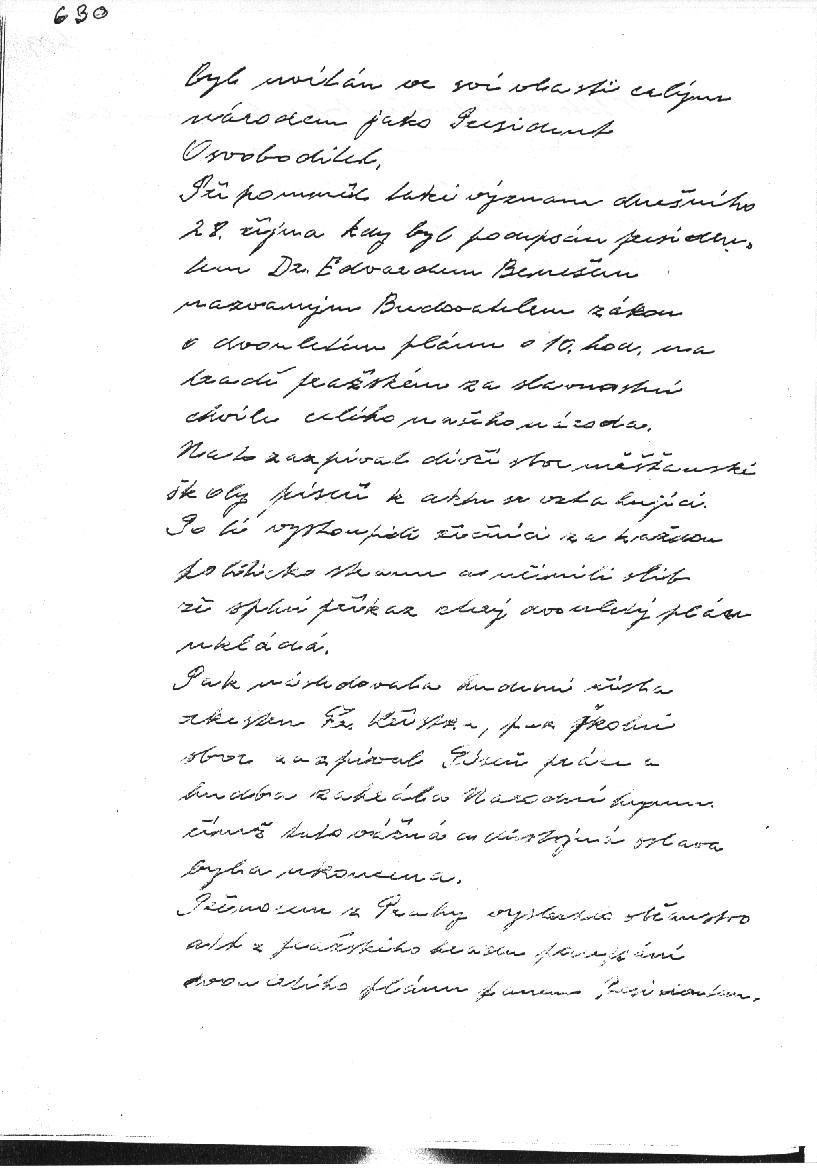 630
byl uvítán ve své vlasti celým
národem jako President
Osvoboditel.
Při pomněl také význam dnešního
28. října kdy byl podepsán presiden-
tem Dr. Edvardem Benešem
nazvaným Budovatelem zákon
o dvouletém plánu o 10. hod. na
hradě pražském za slavnostní
chvíle celého našeho národa.
Nato zazpíval dívčí sbor měšťanské
školy píseň k aktu se vztahující.
Po té vystoupili řečníci za každou
politicko stranu a učinili slib
že splní příkaz který dvouletý plán
ukládá.
Pak následovala hudební vložka
orkestru Fr. Křístka, pak školní
sbor zazpíval Píseň práce a
hudba zahrála Národní hymnu
čímž tato vážná a důstojná oslava
byla ukončena.
Přenosem z Prahy vyslechlo občanstvo
akt z pražského hradu podepsání
dvouletého plánu panem Presidentem.